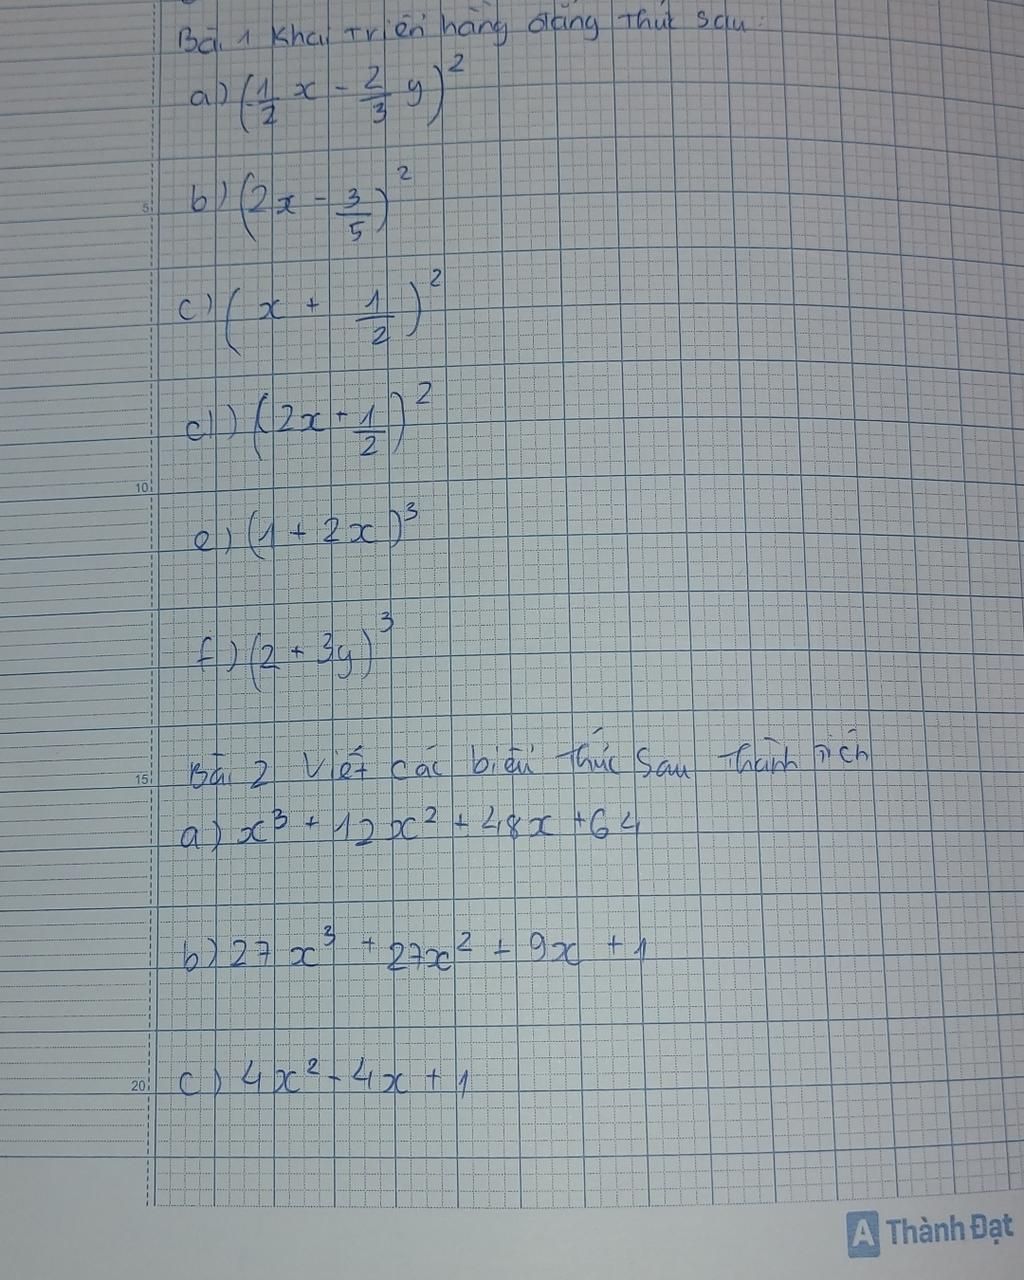 Bài 1 Khai triển hằng đẳng thức sau:
a) (1/2 x - 2/3 y)²
5
b) (2x - 3/5)²
c) (x + 1/2)²
d) (2x + 1/2)²
10
e) (1 + 2x)³
f) (2 + 3y)³
15 Bài 2 Viết các biểu thức sau thành tích
a) x³ + 12x² + 48x + 64
b) 27x³ + 27x² + 9x + 1
20 c) 4x² - 4x + 1
A Thành Đạt